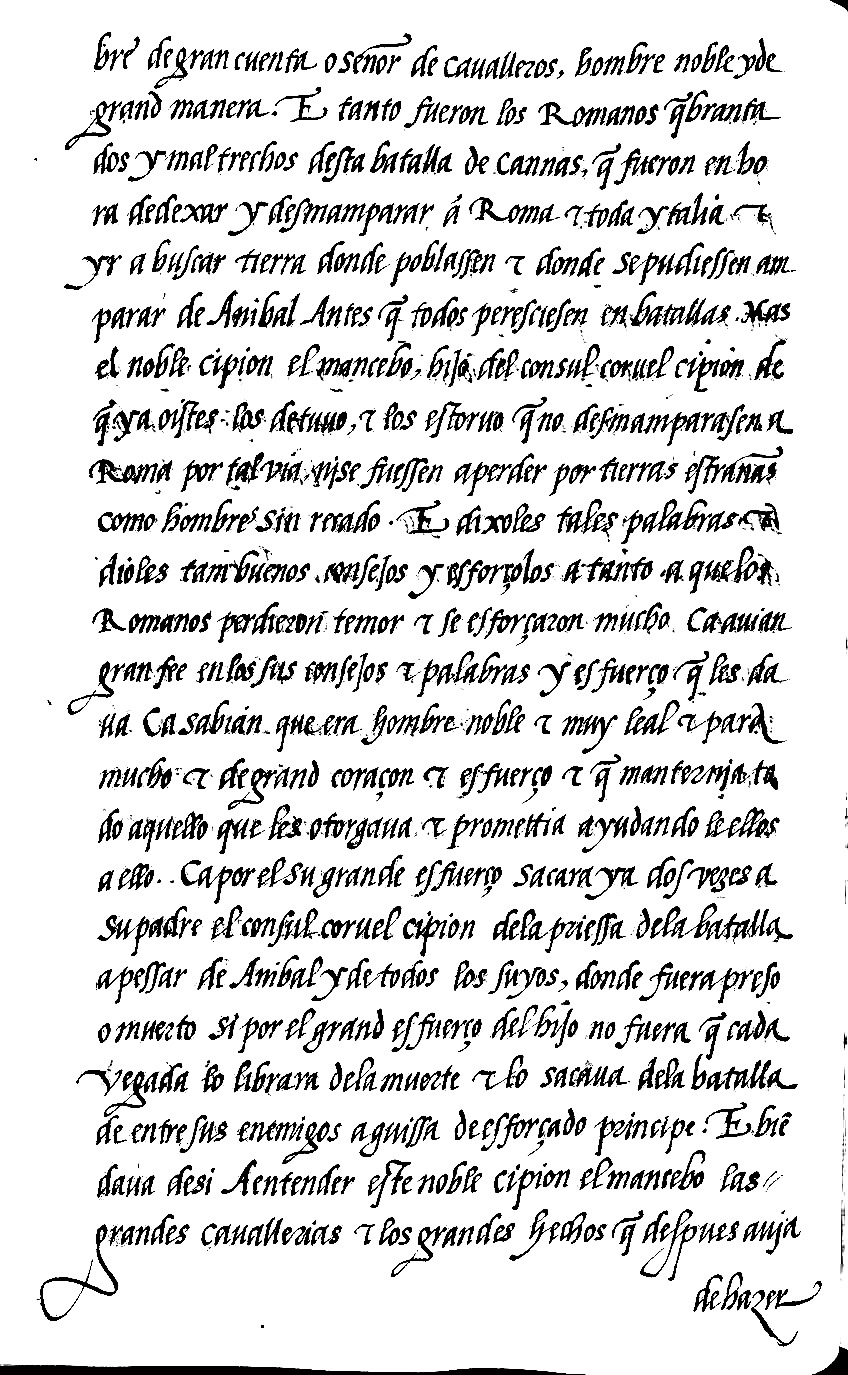 bre de gran cuenta o señor de cavalleros, hombre noble y de
grand manera. E tanto fueron los Romanos q̃branta
dos y maltrechos desta batalla de Cannas, q̃ fueron en ho
ra de dexar y desmamparar á Roma ꞇ toda ytalia ꞇ
yr a buscar tierra donde poblassen ꞇ donde se pudiessen am
parar de Anibal Antes q̃ todos peresciesen en batallas. Mas
el noble Cipion el mancebo, hijo del consul coruel cipion de
q̃ ya oistes los detuuo, ꞇ los estoruo q̃ no desmamparasen a
Roma por tal via, ni se fuessen a perder por tierras estrañas
como hombres sin recado. E dixoles tales palabras ꞇ
dioles tam buenos consejos y esforçolos a tanto a que los
Romanos perdieron temor ꞇ se esforçaron mucho. Ca auian
gran fee en los sus consejos ꞇ palabras y esfuerço q̃ les da
ua Ca sabian que era hombre noble ꞇ muy leal ꞇ para
mucho ꞇ de grand coraçon ꞇ esfuerço ꞇ q̃ manternia to
do aquello que les otorgaua ꞇ promettia ayudandole ellos
a ello. Ca por el su grande esfuerço sacara ya dos vezes a
su padre el consul coruel cipion de la priessa de la batalla
a pessar de Anibal y de todos los suyos, donde fuera preso
o muerto si por el grand esfuerço del hijo no fuera q̃ cada
vegada lo librara de la muerte ꞇ lo sacaua de la batalla
de entre sus enemigos a guissa de esforçado principe. E biẽ
daua desi A entender este noble cipion el mancebo las
grandes cauallerias ꞇ los grandes hechos q̃ despues auia
de hazer